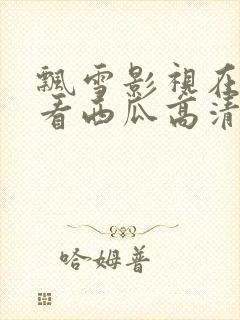 飄雪影視在
看西瓜高清
哈姆普